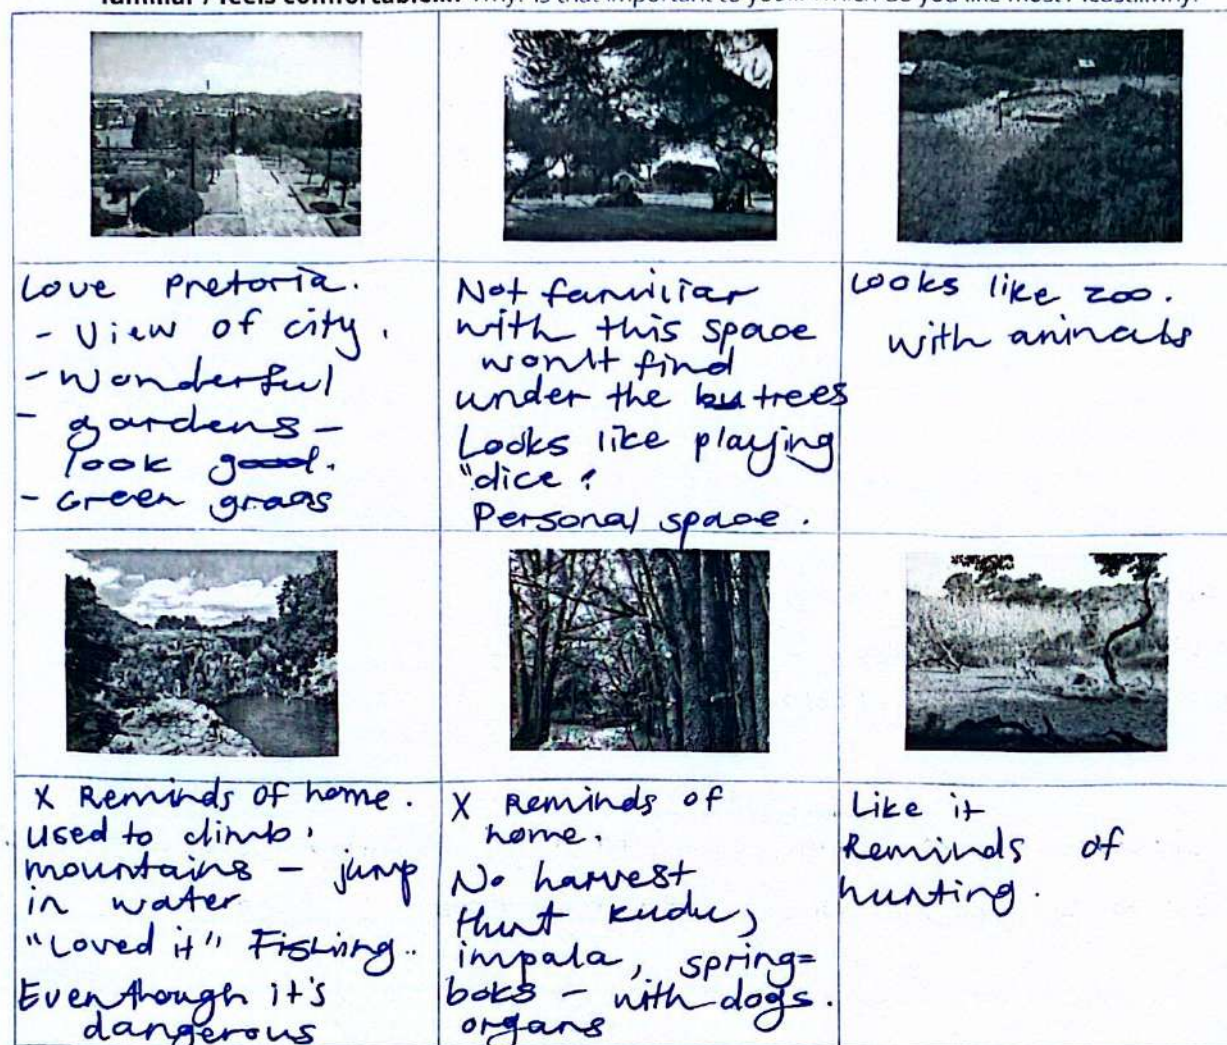 familiar / feels comfortable.... Why? Is that important to you... Which do you like most / least...why?
Love Pretoria.
- View of city.
- Wonderful
- gardens -
look good.
- Green grass
Not familiar
with this space
won't find
under the trees
Looks like playing
"dice?
Personal space.
Looks like zoo.
with animals
X Reminds of home.
Used to climb.
mountains - jump
in water
"Loved it" Fishing..
Eventhough it's
dangerous
X Reminds of
home.
No harvest
Hunt kudu,
impala, spring=
boks - with dogs.
organs
Like it
Reminds of
hunting.